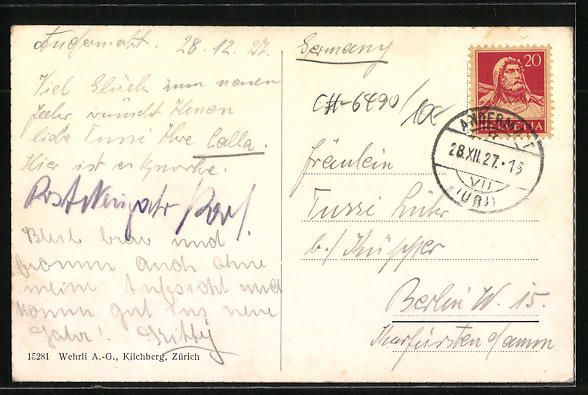 Andermatt. 28.12.27.
Viel Glück zum neuen
Jahr wünscht Ihnen
liebe Tussi Ihre Calla.
Hier ist es
Prost Neujahr
Bleib brav und
fromm auch ohne
meine Aufsicht und
komm gut ins neue
Jahr!
15281 Wehrli A.-G., Kilchberg, Zürich
Germany
CH-6490/
20
HELVETIA
ANDERMATT
28.XII.27.-15
VII
(URI)
Fräulein
Tussi
b./ Küpper
Berlin W. 15.
Kurfürstendamm